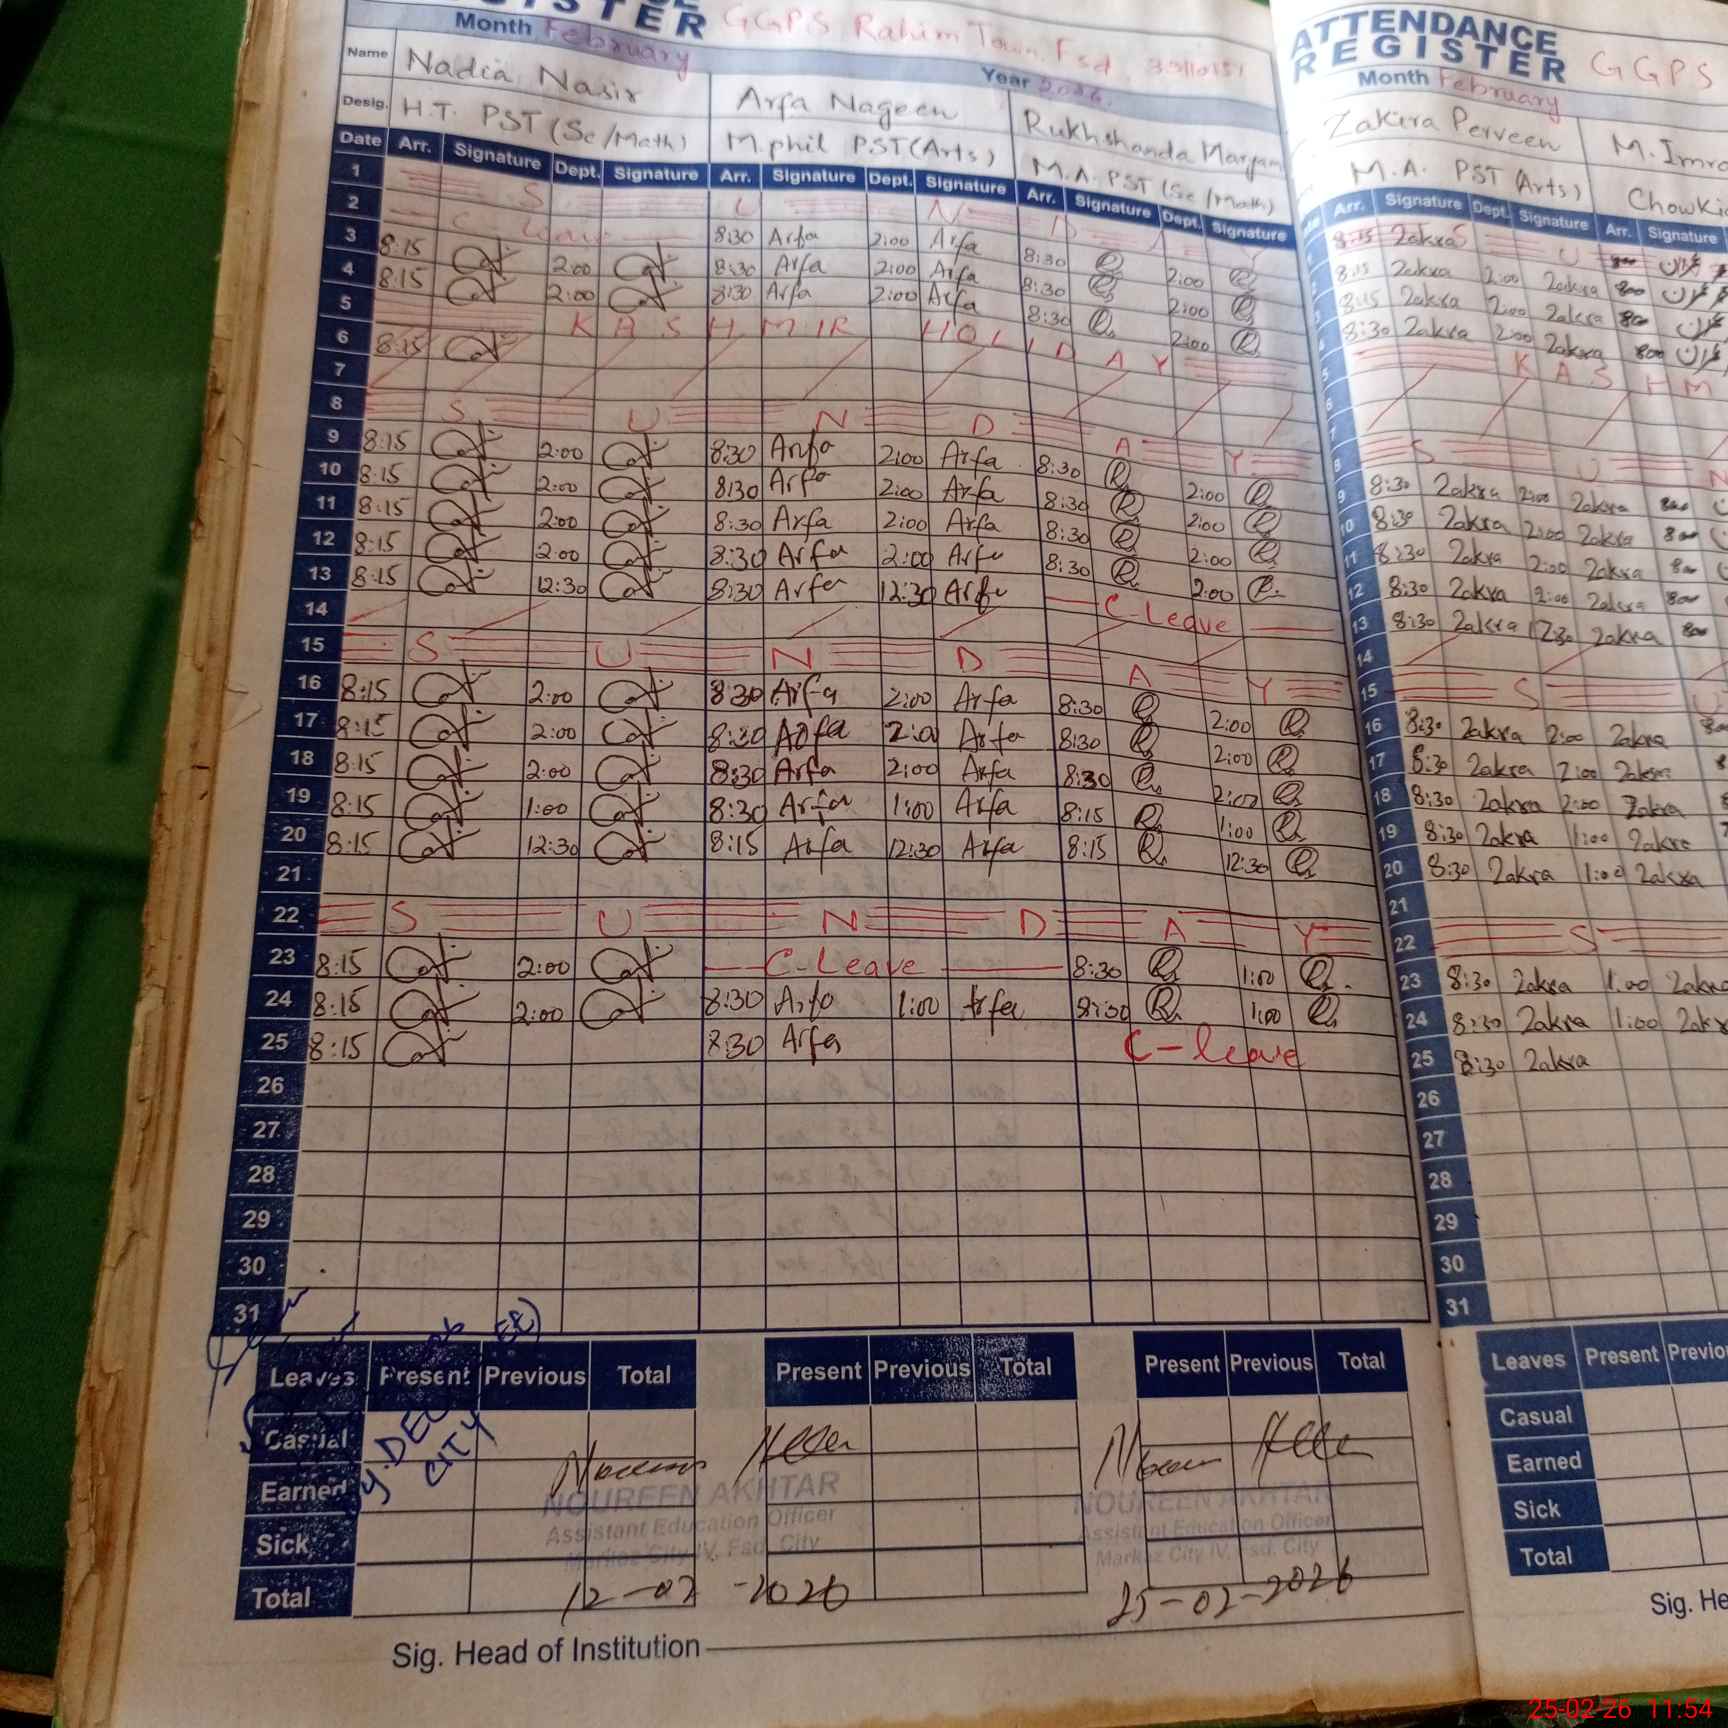 REGISTER GGPS Rahim Town Fsd.
Month February Year 2026
Name Nadia Nasir Arfa Nageen Rukhshanda Maryam
Desig. H.T. PST (Sc/Math) M.phil PST (Arts) M.A. PST (Sc/Math)
Date Arr. Signature Dept. Signature Arr. Signature Dept. Signature Arr. Signature Dept. Signature
1 S U N D A Y
2 C-leave 8:30 Arfa 2:00 Arfa 8:30 2:00
3 8:15 2:00 8:30 Arfa 2:00 Arfa 8:30 2:00
4 8:15 2:00 8:30 Arfa 2:00 Arfa 8:30 2:00
5 K A S H M I R H O L I D A Y
6 8:15
7
8 S U N D A Y
9 8:15 2:00 8:30 Arfa 2:00 Arfa 8:30 2:00
10 8:15 2:00 8:30 Arfa 2:00 Arfa 8:30 2:00
11 8:15 2:00 8:30 Arfa 2:00 Arfa 8:30 2:00
12 8:15 2:00 8:30 Arfa 2:00 Arfa 8:30 2:00
13 8:15 12:30 8:30 Arfa 12:30 Arfa C-Leave
14
15 S U N D A Y
16 8:15 2:00 8:30 Arfa 2:00 Arfa 8:30 2:00
17 8:15 2:00 8:30 Arfa 2:00 Arfa 8:30 2:00
18 8:15 2:00 8:30 Arfa 2:00 Arfa 8:30 2:00
19 8:15 1:00 8:30 Arfa 1:00 Arfa 8:15 1:00
20 8:15 12:30 8:15 Arfa 12:30 Arfa 8:15 12:30
21
22 S U N D A Y
23 8:15 2:00 C-Leave 8:30 1:00
24 8:15 2:00 8:30 Arfa 1:00 Arfa 8:30 1:00
25 8:15 8:30 Arfa C-leave
26
27
28
29
30
31
Leaves Present Previous Total Present Previous Total Present Previous Total
Casual
Earned
Sick
Total
Dy. DEO
CITY
NOUREEN AKHTAR
Assistant Education Officer
Markaz City IV, Fsd. City
12-02-2026
NOUREEN AKHTAR
Assistant Education Officer
Markaz City IV, Fsd. City
25-02-2026
Sig. Head of Institution
ATTENDANCE
REGISTER GGPS
Month February
Zakira Perveen
M.A. PST (Arts)
Arr. Signature Dept. Signature Arr. Signature
1 S U
2 8:15 Zakra 2:00 Zakra 8:00
3 8:15 Zakra 2:00 Zakra 8:00
4 8:30 Zakra 2:00 Zakra 8:00
5 K A S H M
6
7
8 S U N
9 8:30 Zakra 2:00 Zakra 8:00
10 8:30 Zakra 2:00 Zakra 8:00
11 8:30 Zakra 2:00 Zakra 8:00
12 8:30 Zakra 2:00 Zakra 8:00
13 8:30 Zakra 12:30 Zakra 8:00
14
15 S U
16 8:30 Zakra 2:00 Zakra
17 8:30 Zakra 2:00 Zakra
18 8:30 Zakra 2:00 Zakra
19 8:30 Zakra 1:00 Zakra
20 8:30 Zakra 1:00 Zakra
21
22 S
23 8:30 Zakra 1:00 Zakra
24 8:30 Zakra 1:00
25 8:30 Zakra
26
27
28
29
30
31
Leaves Present
Casual
Earned
Sick
Total
25-02-26 11:54